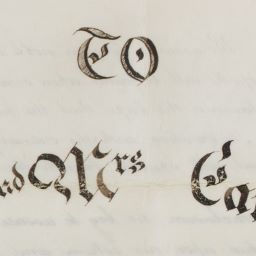 TO
nd Mrs Ca